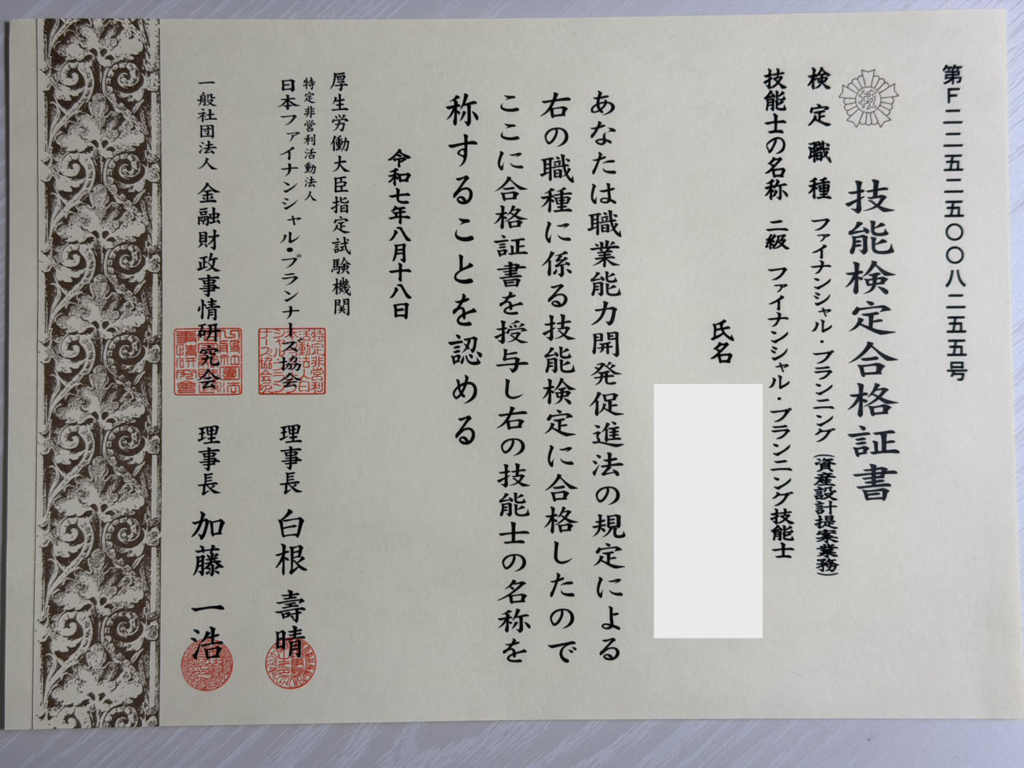 第F二二五二五〇〇八二五五号
技能検定合格証書
検定職種 ファイナンシャル・プランニング(資産設計提案業務)
技能士の名称 二級 ファイナンシャル・プランニング技能士
氏名
あなたは職業能力開発促進法の規定による
右の職種に係る技能検定に合格したので
ここに合格証書を授与し右の技能士の名称を
称することを認める
令和七年八月十八日
厚生労働大臣指定試験機関
特定非営利活動法人
日本ファイナンシャル・プランナーズ協会 理事長 白根 壽晴
一般社団法人 金融財政事情研究会 理事長 加藤 一浩